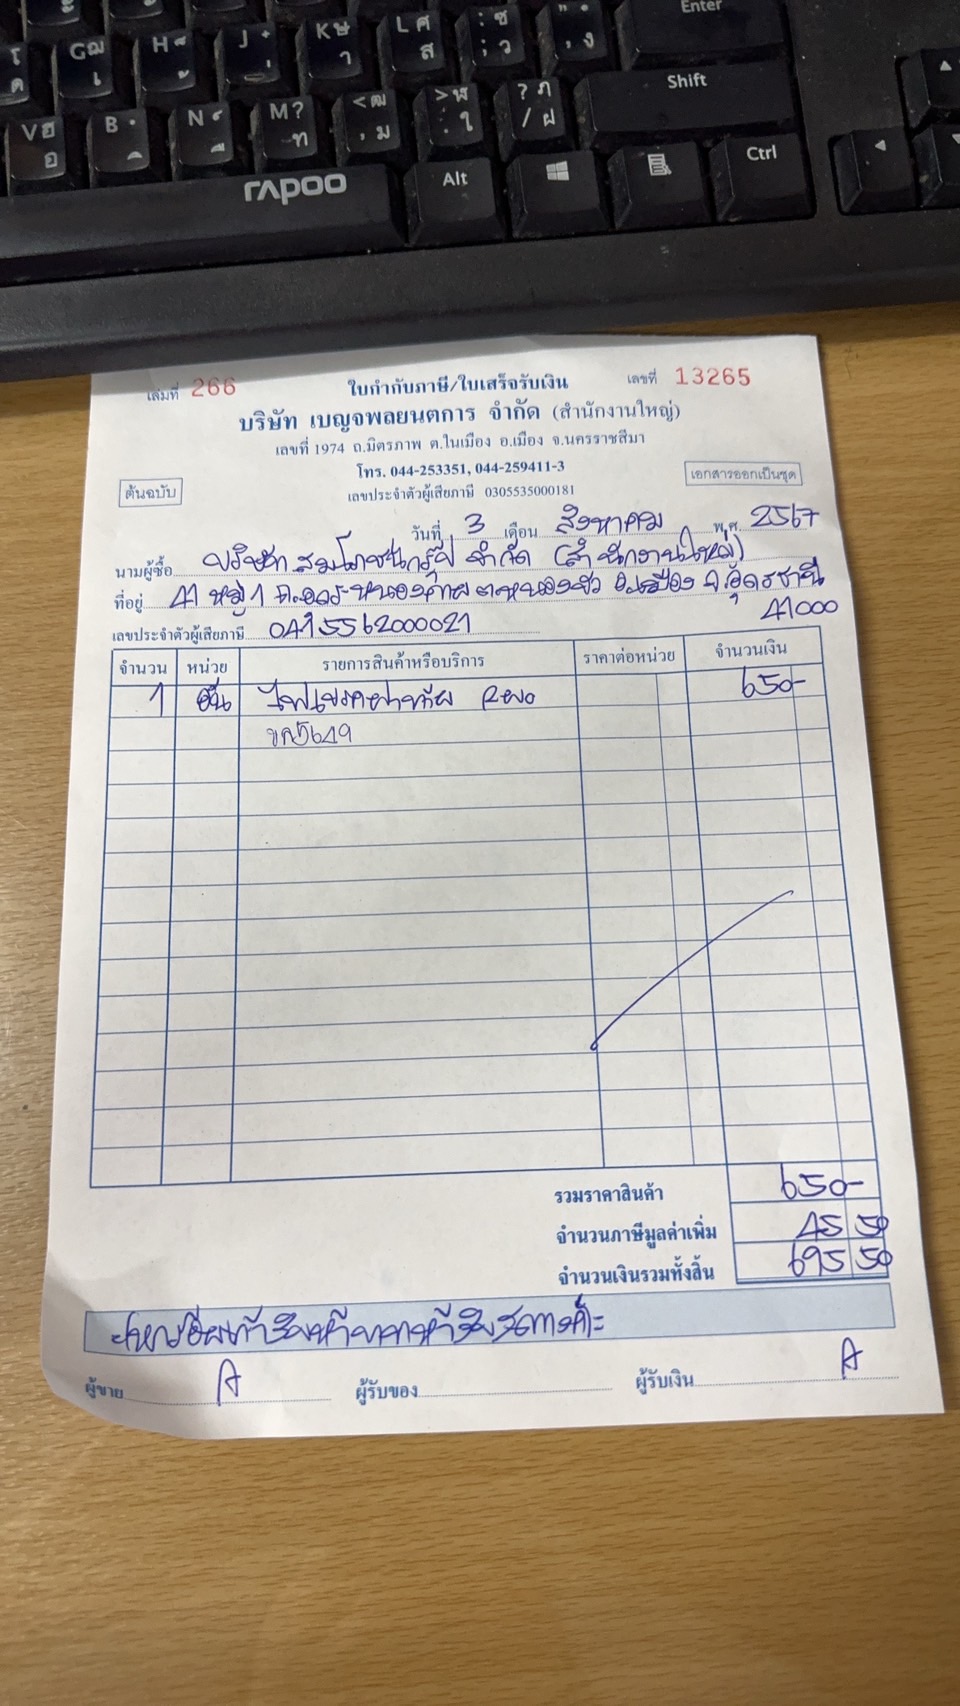 Enter
โ ด
G ฌ เ
H ็ ้
J ๋ ่
K ษ า
L ศ ส
: ซ ; ว
" . ' ง
Shift
V ฮ อ
B ฺ ิ
N ์ ื
M ? ท
< ฒ , ม
> ฬ . ใ
? ฦ / ฝ
rapoo
Alt
Ctrl
เล่มที่ 266
ใบกำกับภาษี/ใบเสร็จรับเงิน
เลขที่ 13265
บริษัท เบญจพลยนตการ จำกัด (สำนักงานใหญ่)
เลขที่ 1974 ถ.มิตรภาพ ต.ในเมือง อ.เมือง จ.นครราชสีมา
โทร. 044-253351, 044-259411-3
ต้นฉบับ
เลขประจำตัวผู้เสียภาษี 0305535000181
เอกสารออกเป็นชุด
วันที่ 3 เดือน สิงหาคม พ.ศ. 2567
นามผู้ซื้อ บริษัท สมโภชน์กรุ๊ป จำกัด (สำนักงานใหญ่)
ที่อยู่ 41 หมู่ 1 ถ.อุดร-หนองคาย ต.หนองบัว อ.เมือง จ.อุดรธานี
41000
เลขประจำตัวผู้เสียภาษี 0415562000021
จำนวน หน่วย รายการสินค้าหรือบริการ ราคาต่อหน่วย จำนวนเงิน
1 อัน ไฟเบรคฝาท้าย Revo 650-
5649
รวมราคาสินค้า 650-
จำนวนภาษีมูลค่าเพิ่ม 45 50
จำนวนเงินรวมทั้งสิ้น 695 50
หกร้อยเก้าสิบห้าบาทห้าสิบสตางค์
ผู้ขาย A ผู้รับของ ผู้รับเงิน A